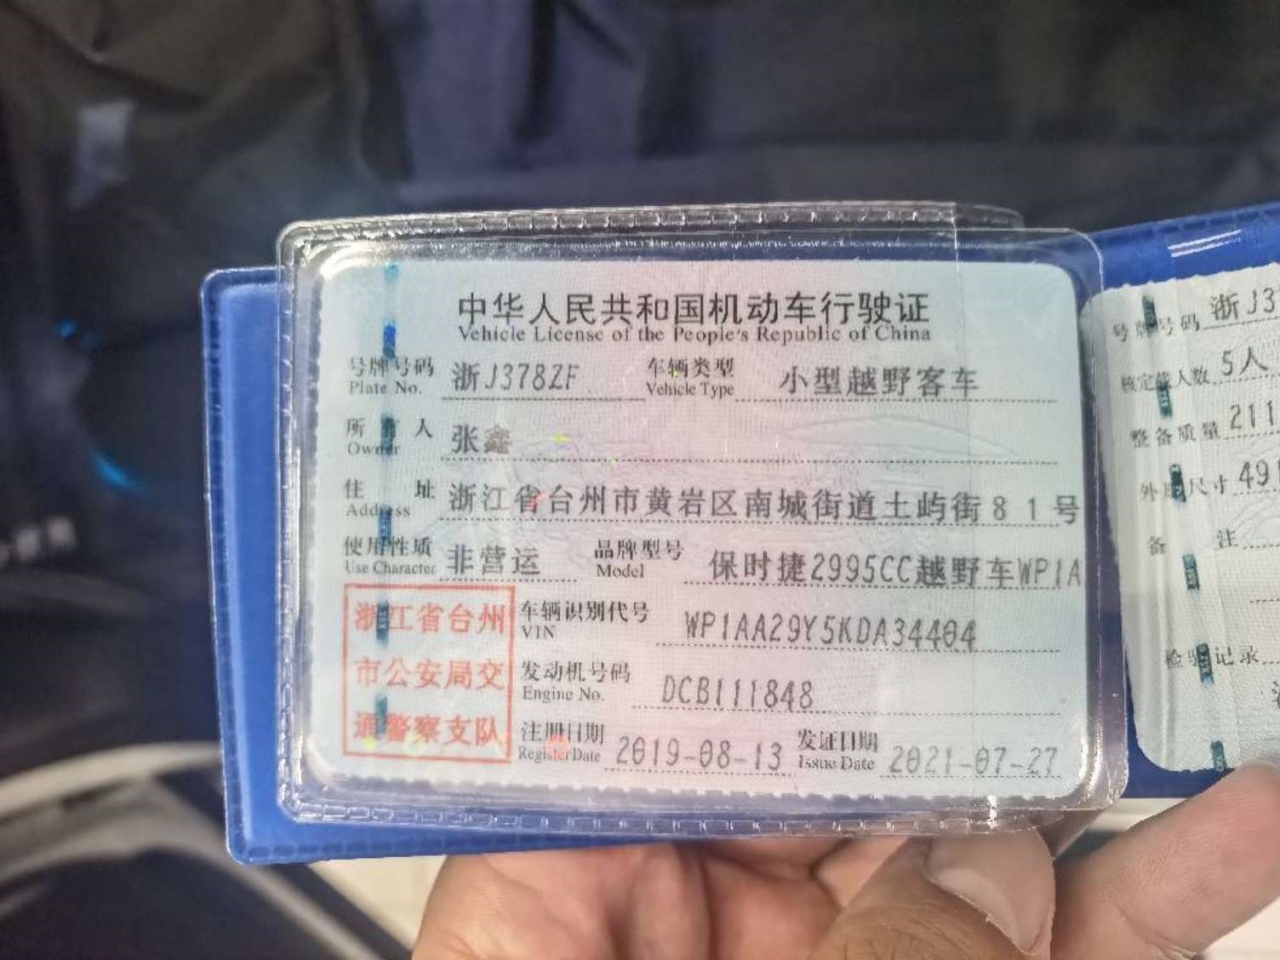 中华人民共和国机动车行驶证
Vehicle License of the People's Republic of China
号牌号码 浙J378ZF 车辆类型 小型越野客车
Plate No. Vehicle Type
所有人 张鑫
Owner
住址 浙江省台州市黄岩区南城街道土屿街81号
Address
使用性质 非营运 品牌型号 保时捷2995CC越野车WP1A
Use Character Model
浙江省台州
市公安局交
通警察支队
车辆识别代号 WP1AA29Y5KDA34404
VIN
发动机号码 DCB111848
Engine No.
注册日期 2019-08-13 发证日期 2021-07-27
Register Date Issue Date
号牌号码 浙J3
核定载人数 5人
整备质量 211
外廓尺寸 49
备注
检验记录